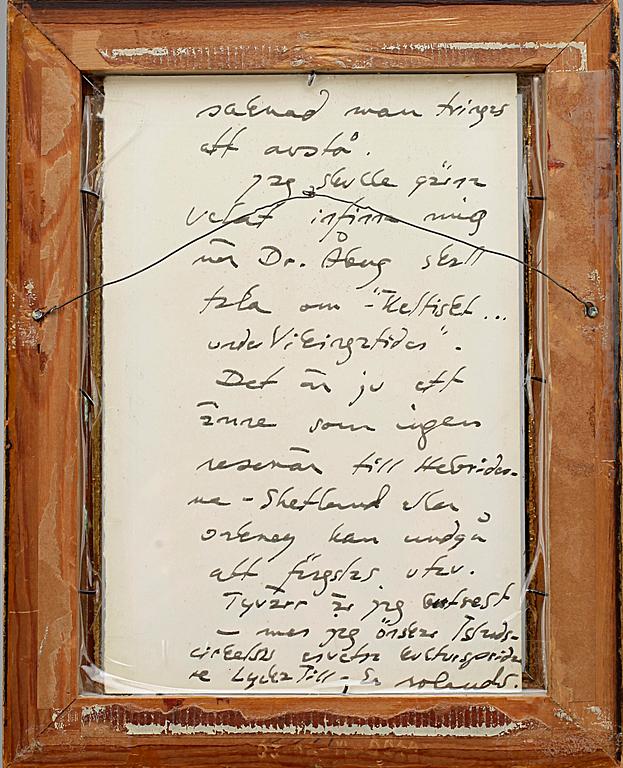 saknad man tvinges
att avstå.
Jag skulle gärna
velat infinna mig
när Dr. Åberg skall
tala om - "Keltiskt...
under Vikingatiden".
Det är ju ett
ämne som ingen
resenär till Hebrider-
na - Shetland eller
Orkney kan undgå
att fängslas utav.
Tyvärr är jag bortrest
- men jag önskar Islands-
cirkelns
re Lycka Till -